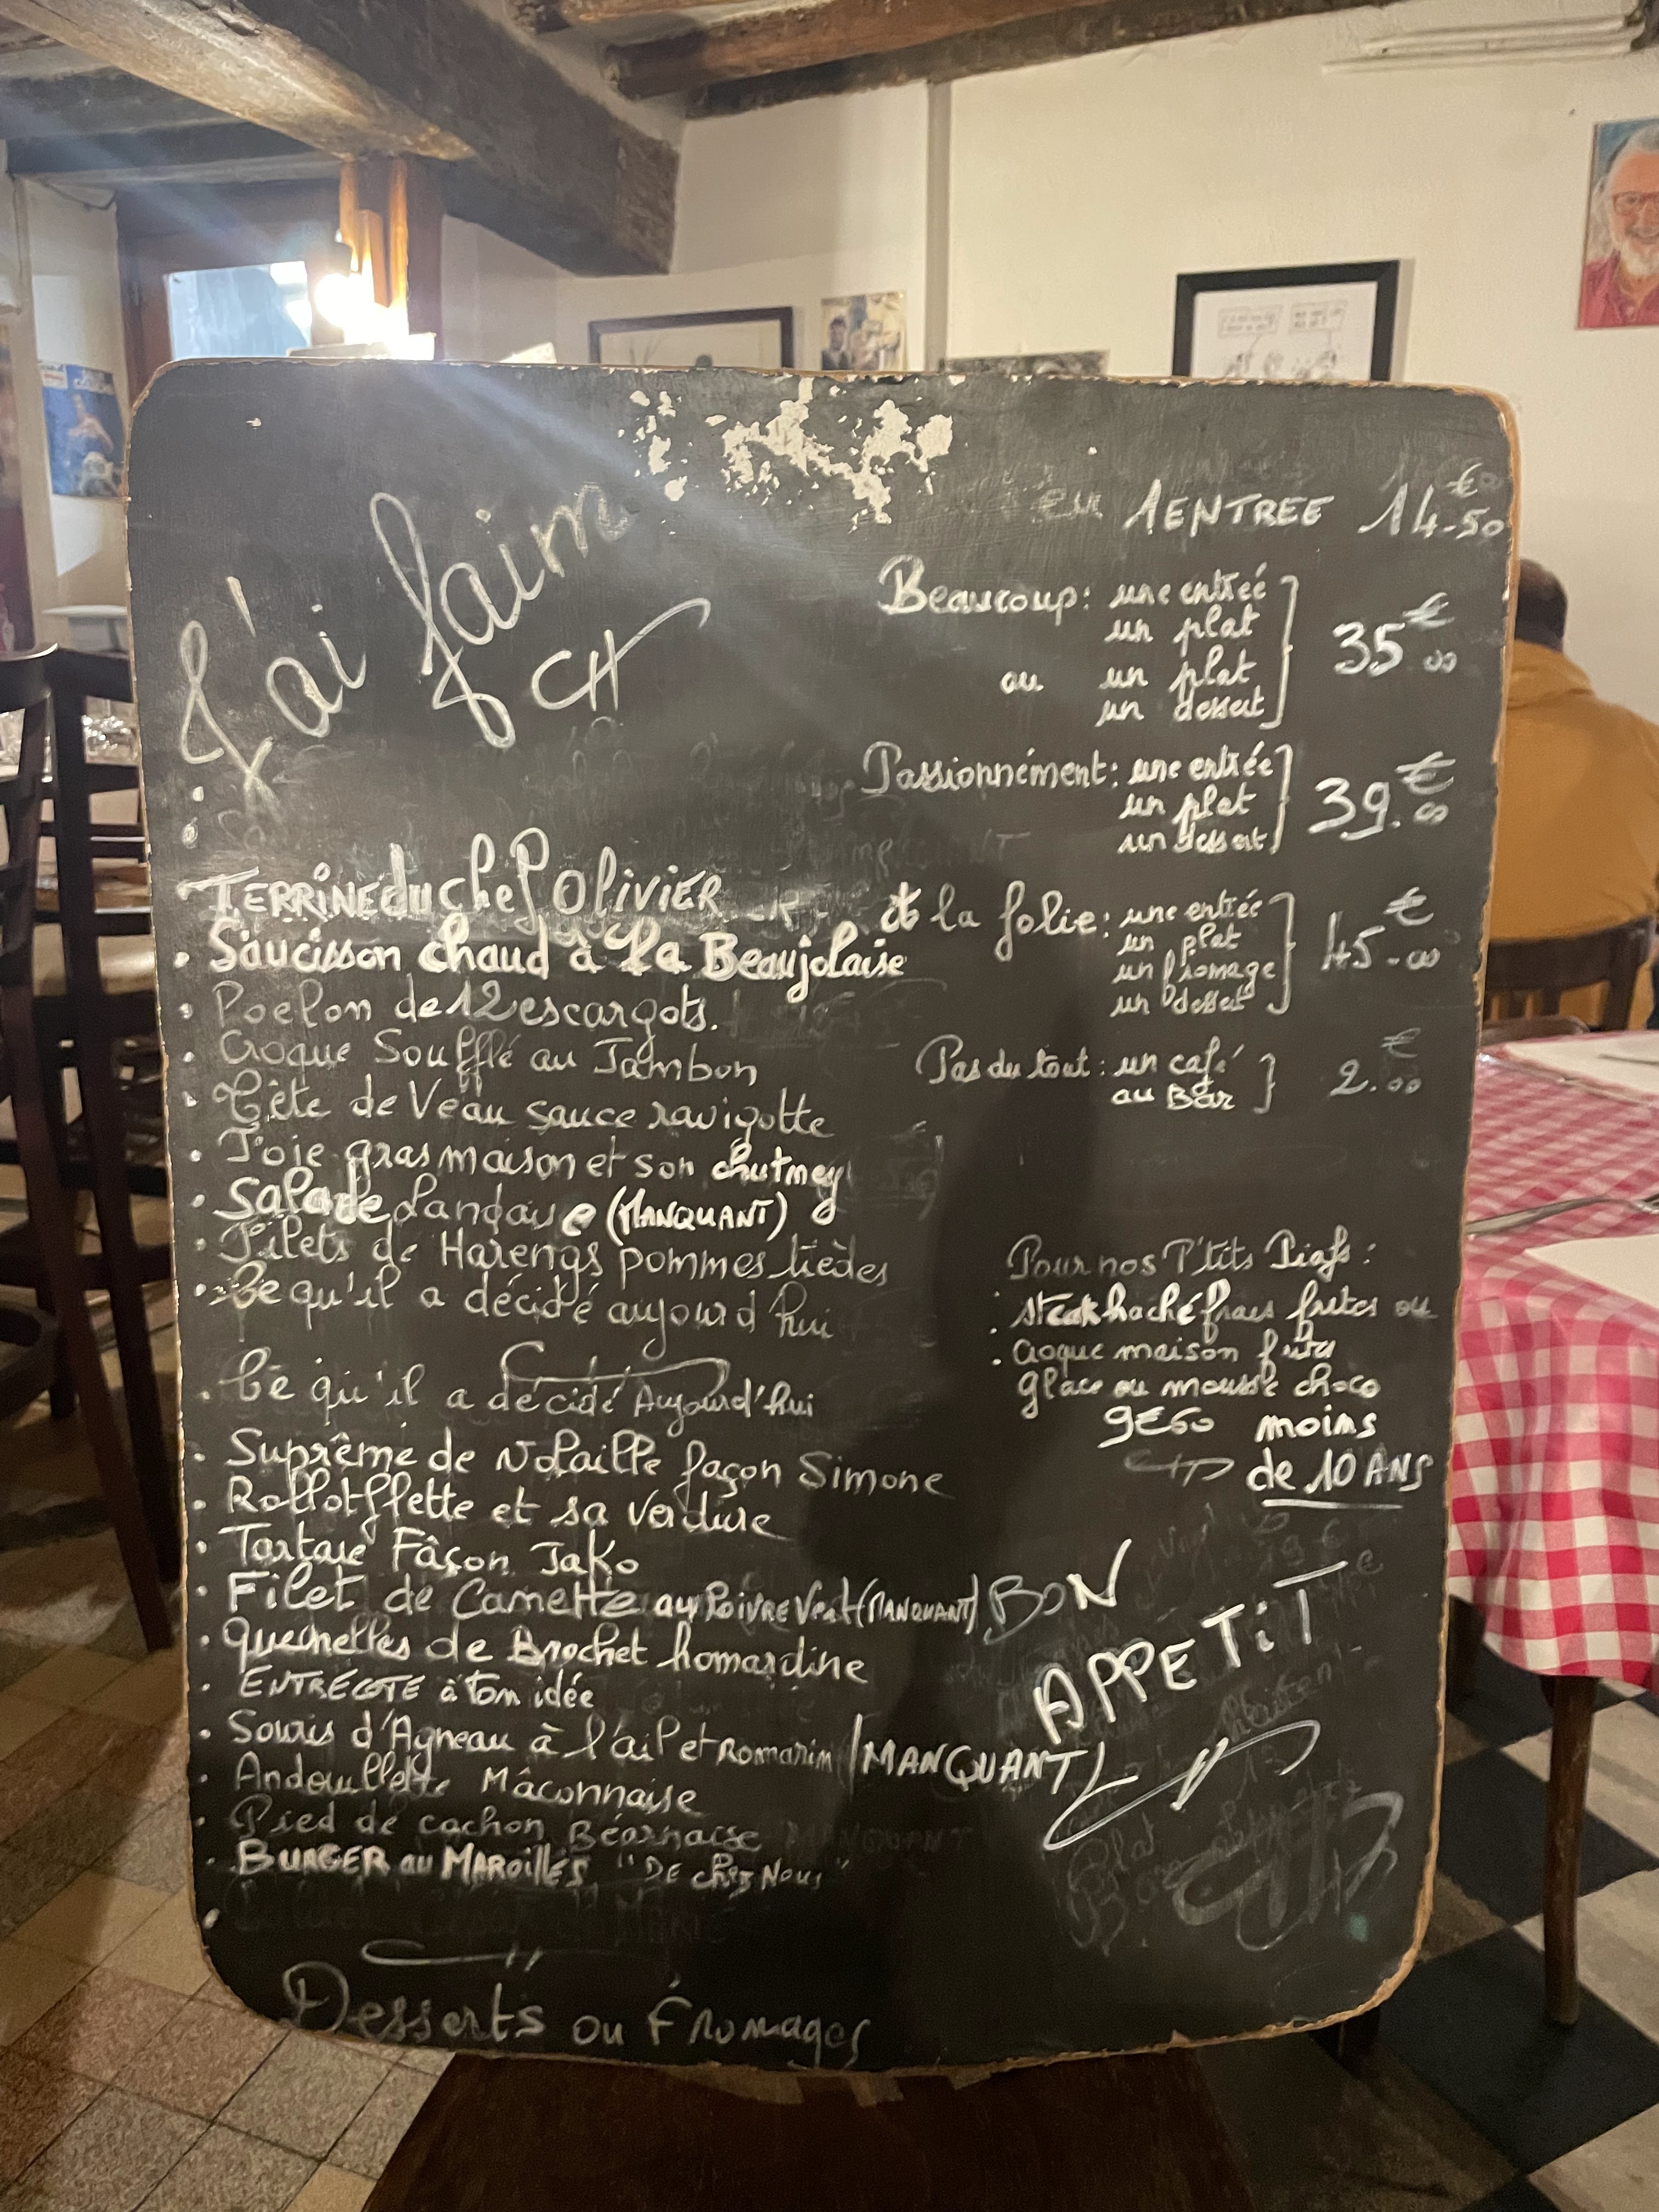 J'ai faim
1 ENTREE 14.50€
Beaucoup: une entrée
un plat
ou un plat
un dessert
35.00€
Passionnément: une entrée
un plat
un dessert
39.00€
à la folie: une entrée
un plat
un fromage
un dessert
45.00€
Pas du tout: un café
au Bar
2.00€
• TERRINE du chef OLIVIER
• Saucisson chaud à la Beaujolaise
• Poelon de 12 escargots.
• Croque Soufflé au Jambon
• Tête de Veau sauce ravigotte
• Foie gras maison et son chutney
• Salade Landaise (MANQUANT)
• Filets de Harengs pommes tièdes
• Ce qu'il a décidé aujourd'hui
• Ce qu'il a décidé Aujourd'hui
• Suprême de Volaille façon Simone
• Rollotfflette et sa verdure
• Tartare Façon Jako
• Filet de Canette au Poivre Vert (MANQUANT)
• Quennelles de Brochet homardine
• ENTRECOTE à ton idée
• Souris d'Agneau à l'ail et Romarin (MANQUANT)
• Andouillette Mâconnaise
• Pied de cochon Béarnaise
• BURGER au MAROILLES "DE chez Nous"
Desserts ou Fromages
Pour nos P'tits Piafs:
• steak haché frais frites ou
• croque maison frites
glace ou mousse choco
9€60 moins
de 10 ANS
BON
APPETiT